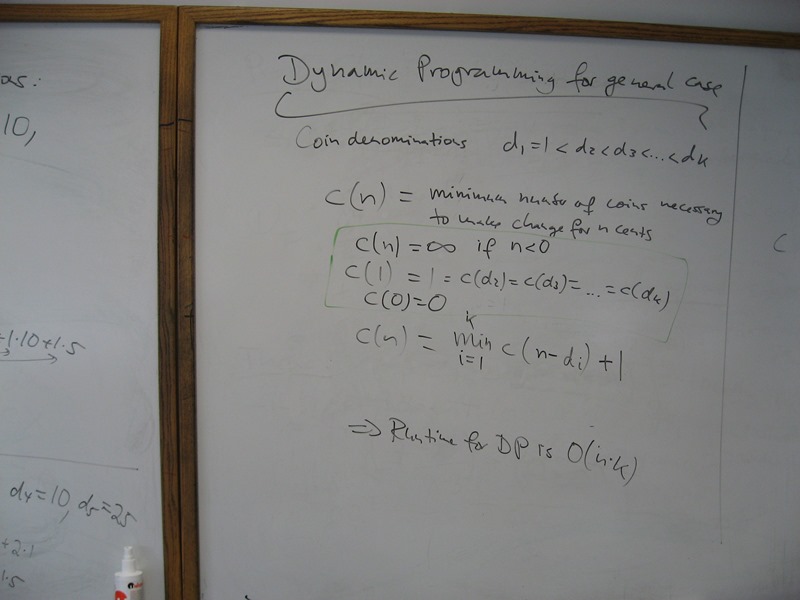 as:
10,
+1·10+1·5
d₄=10, d₅=25
+2·1
1·5
Dynamic Programming for general case
Coin denominations d₁=1<d₂<d₃<...<dₖ
c(n) = minimum number of coins necessary
to make change for n cents
c(n)=∞ if n<0
c(1) = 1 = c(d₂)=c(d₃)=...=c(dₖ)
c(0)=0
k
c(n) = min c(n-dᵢ)+1
i=1
=> Runtime for DP is O(n·k)
C